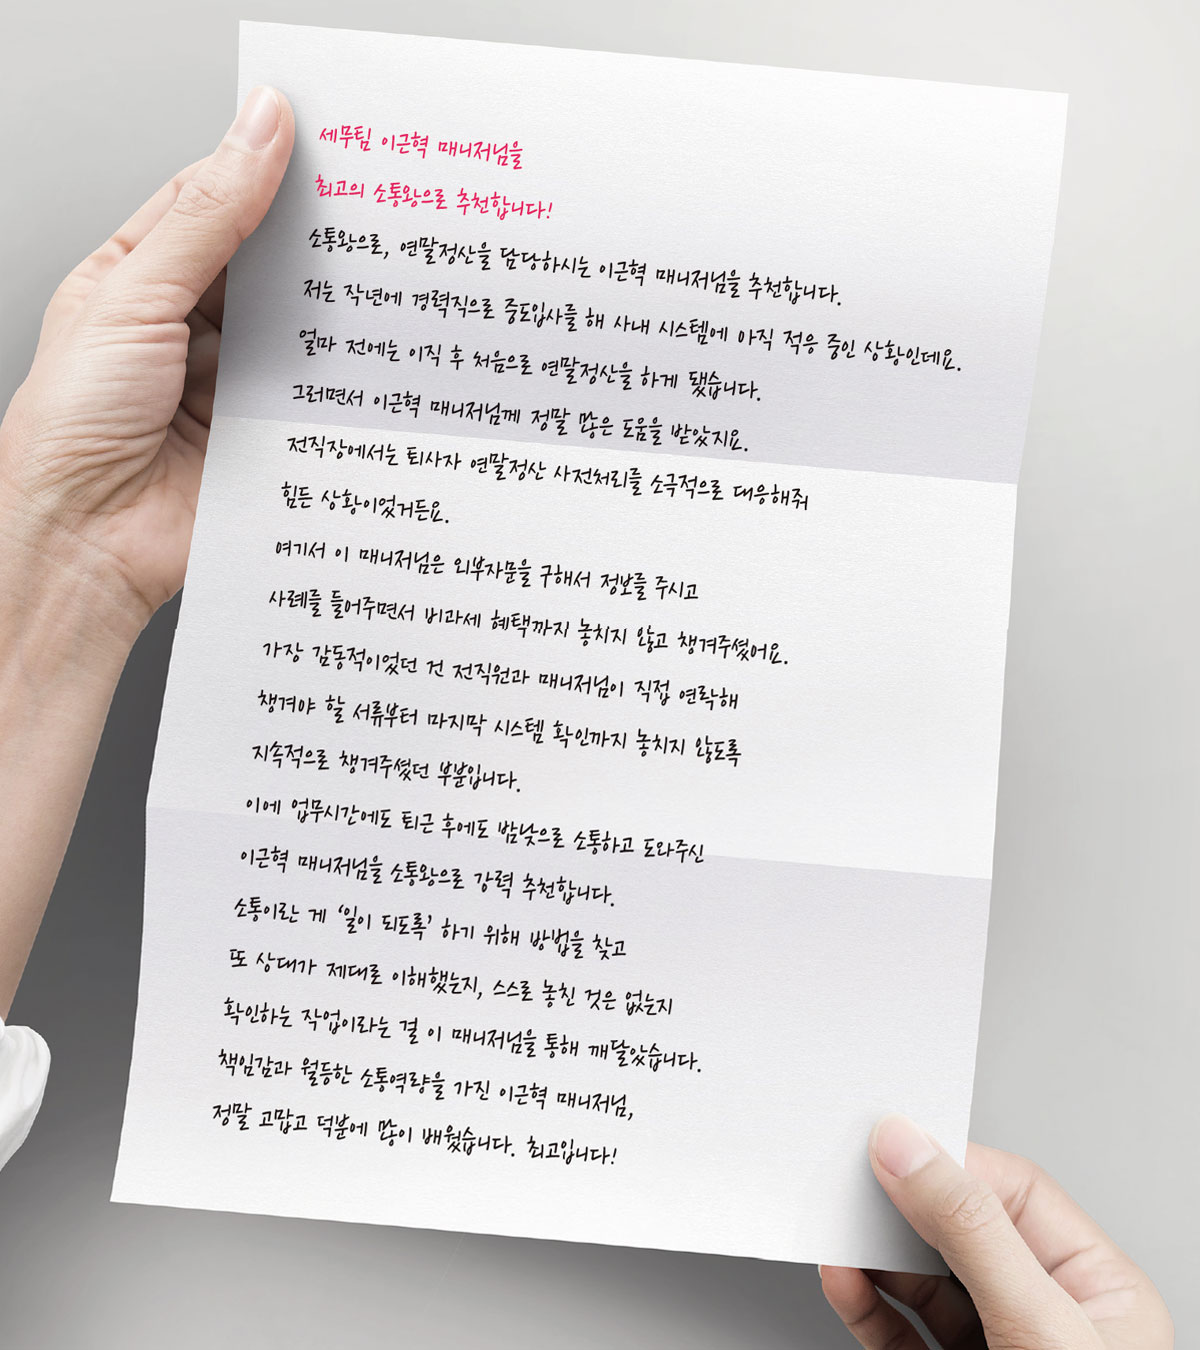 세무팀 이근혁 매니저님을
최고의 소통왕으로 추천합니다!
소통왕으로, 연말정산을 담당하시는 이근혁 매니저님을 추천합니다.
저는 작년에 경력직으로 중도입사를 해 사내 시스템에 아직 적응 중인 상황인데요.
얼마 전에는 이직 후 처음으로 연말정산을 하게 됐습니다.
그러면서 이근혁 매니저님께 정말 많은 도움을 받았지요.
전직장에서는 퇴사자 연말정산 사전처리를 소극적으로 대응해줘
힘든 상황이었거든요.
여기서 이 매니저님은 외부자문을 구해서 정보를 주시고
사례를 들어주면서 비과세 혜택까지 놓치지 않고 챙겨주셨어요.
가장 감동적이었던 건 전직원과 매니저님이 직접 연락해
챙겨야 할 서류부터 마지막 시스템 확인까지 놓치지 않도록
지속적으로 챙겨주셨던 부분입니다.
이에 업무시간에도 퇴근 후에도 밤낮으로 소통하고 도와주신
이근혁 매니저님을 소통왕으로 강력 추천합니다.
소통이란 게 ‘일이 되도록’ 하기 위해 방법을 찾고
또 상대가 제대로 이해했는지, 스스로 놓친 것은 없는지
확인하는 작업이라는 걸 이 매니저님을 통해 깨달았습니다.
책임감과 월등한 소통역량을 가진 이근혁 매니저님,
정말 고맙고 덕분에 많이 배웠습니다. 최고입니다!